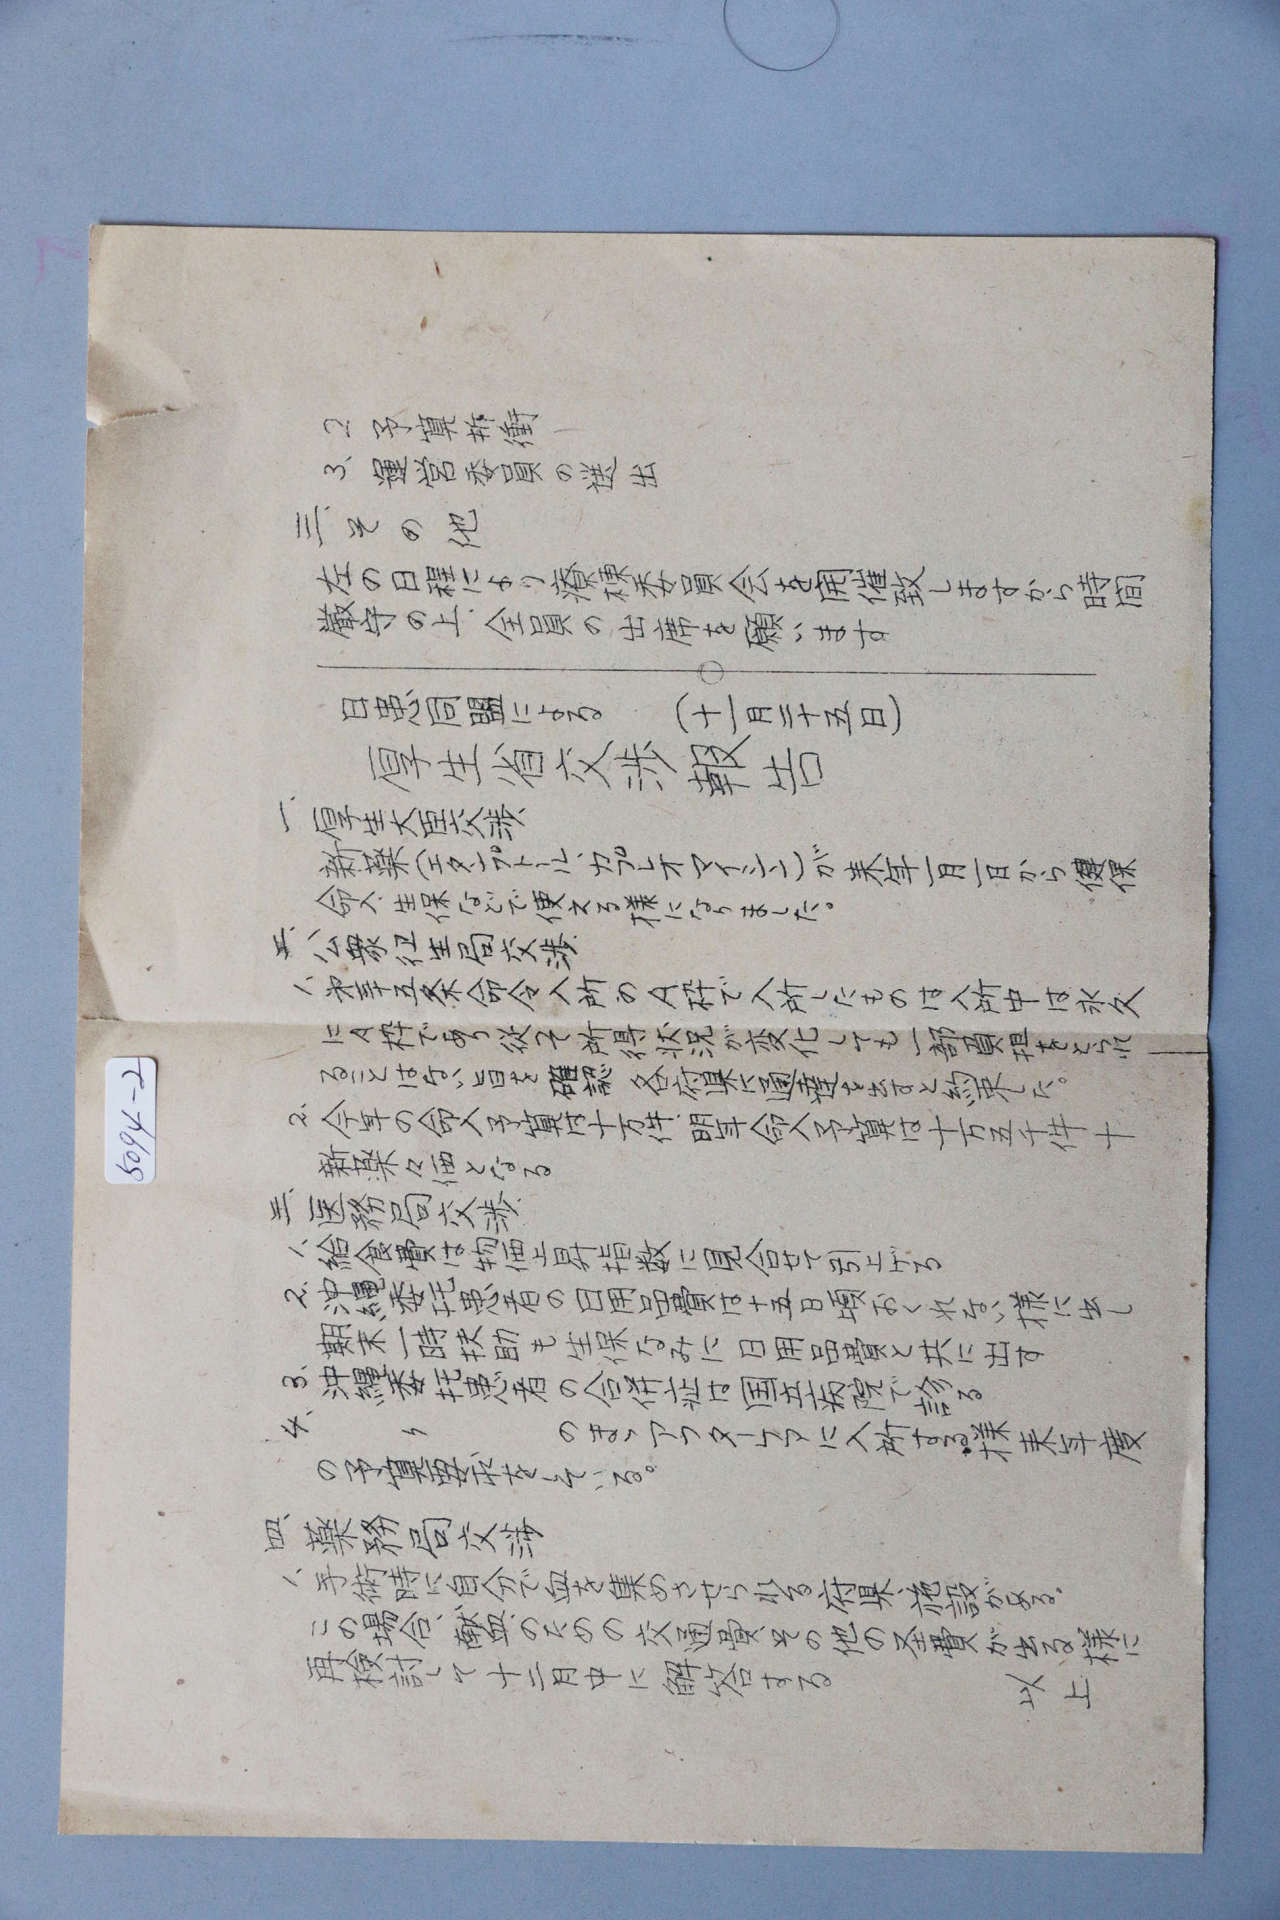 2 予算折衝
3、運営委員の選出
三、その他
左の日程により療棟委員会を開催致しますから時間
厳守の上、全員の出席を願います
日患同盟による (十一月二十五日)
厚生省交渉報告
一、厚生大臣交渉
新薬(エタンブトール、カプレオマイシン)が来年一月一日から健保
命入、生保などで使える様になりました。
二、公衆衛生局交渉
1、第三十五条命令入所のA枠で入所したものは入所中は永久
にA枠であり従って所得状況が変化しても一部負担をとられ
ることはない旨を確認 各府県に通達を出すと約束した。
2、今年の命入予算は十万件、明年命入予算は十万五千件+
新薬々価となる
三、医務局交渉
1、給食費は物価上昇指数に見合せて引上げる
2、沖縄委託患者の日用品費は十五日頃おくれない様に出し
期末一時扶助も生保なみに日用品費と共に出す
3、沖縄委託患者の合併症は国立病院で診る
4、 〃 のままアフターケアに入所する様来年度
の予算要求をしている。
四、薬務局交渉
1、手術時に自分で血を集めさせられる府県、施設がある。
この場合、献血のための交通費、その他の全費が出る様に
再検討して十二月中に解答する
以上
5094-2